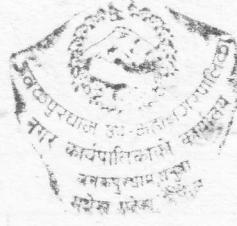 जनकपुरधाम उप-महानगरपालिका
नगर कार्यपालिकाको कार्यालय
जनकपुरधाम धनुषा
मधेश प्रदेश, नेपाल